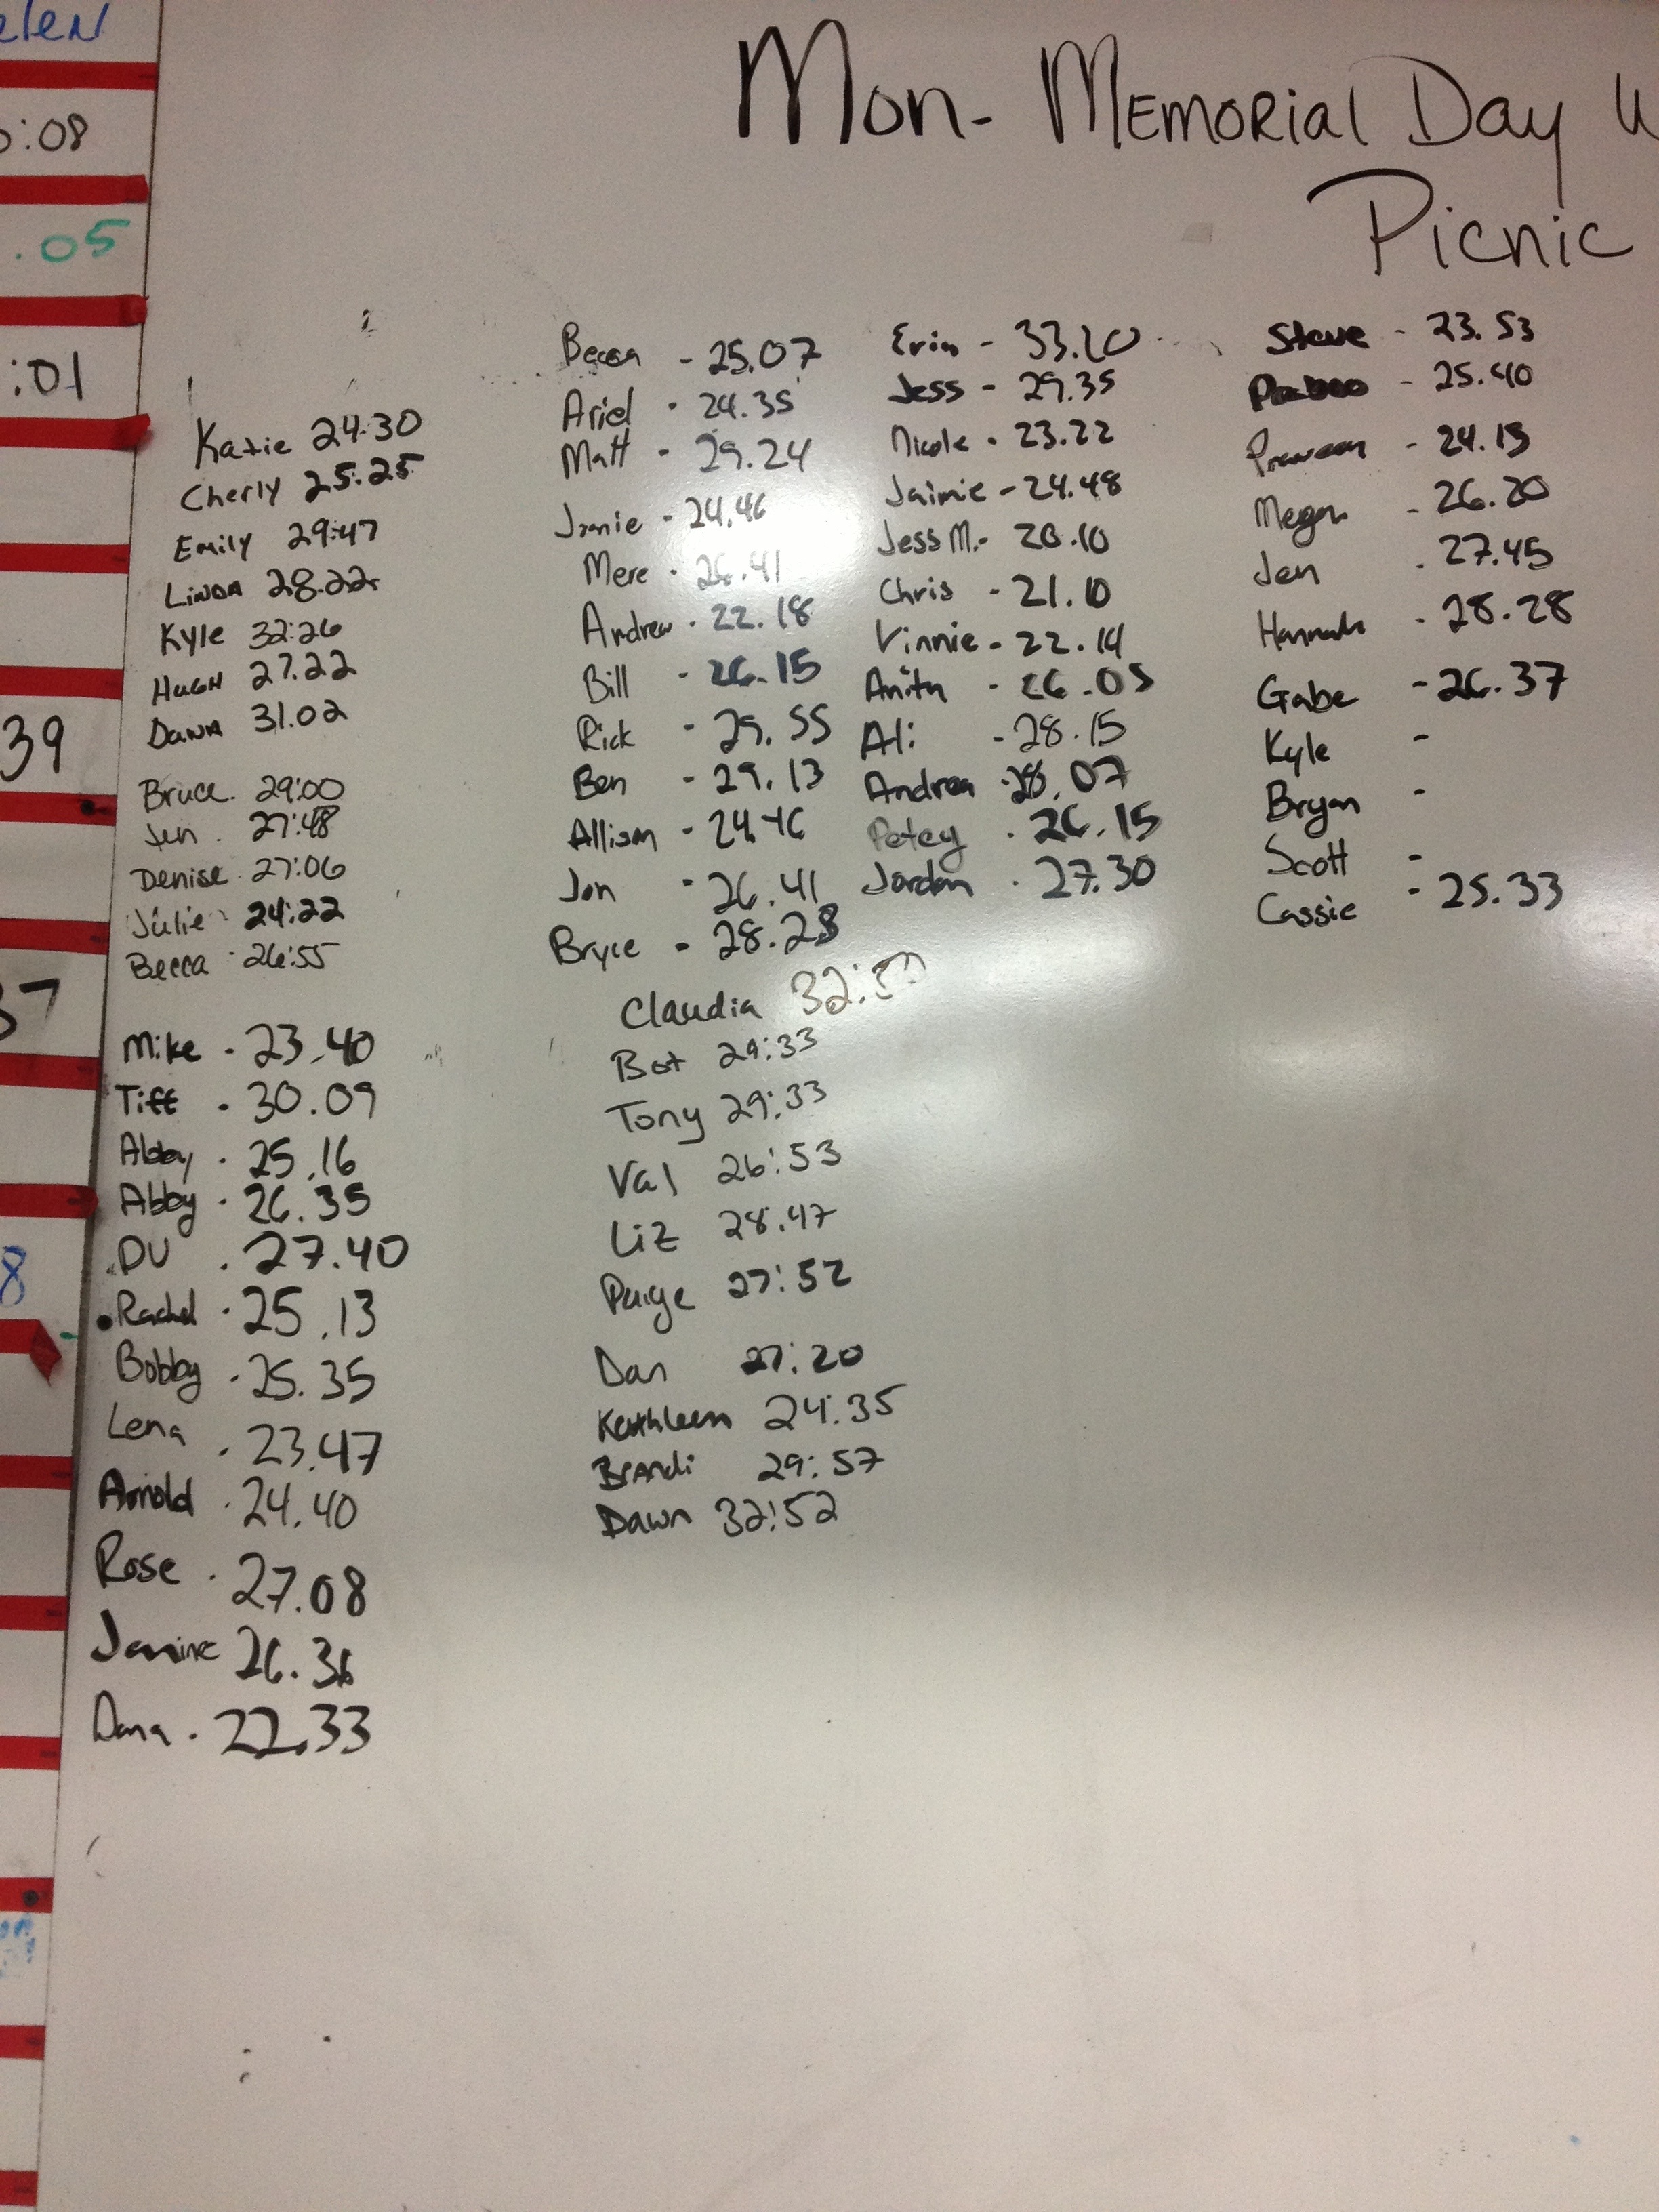 elen
:08
.05
:01
39
37
8
Mon- Memorial Day
Picnic
Katie 24:30
Cherly 25:25
Emily 29:47
Linda 28:22
Kyle 32:26
Hugh 27.22
Dawn 31.02
Bruce. 29:00
Jen . 27:48
Denise. 27:06
Julie 24:22
Becca 26:55
Mike - 23.40
Tiff - 30.09
Abby . 25.16
Abby . 26.35
DU . 27.40
Rachel . 25.13
Bobby . 25.35
Lena . 23.47
Arnold . 24.40
Rose . 27.08
Janine 26.36
Dana . 22.33
Becca - 25.07
Ariel - 24.35
Matt - 29.24
Jamie - 24.46
Mere - 26.41
Andrew - 22.18
Bill - 26.15
Rick - 29.55
Ben - 29.13
Allison - 24.46
Jon - 26.41
Bryce - 28.28
Claudia 32:
Bot 29:33
Tony 29:33
Val 26:53
Liz 28:47
Paige 27:52
Dan 27:20
Kathleen 24:35
Brandi 29:57
Dawn 32:52
Erin - 33.20
Jess - 29.35
Nicole - 23.22
Jaimie - 24.48
Jess M. - 28.10
Chris - 21.10
Vinnie - 22.14
Anita - 26.05
Ali - 28.15
Andrea - 28.07
Petey . 26.15
Jordan . 27.30
Steve - 23.53
- 25.40
Praveen - 24.15
Megan - 26.20
Jen . 27.45
Hannah . 28.28
Gabe - 26.37
Kyle -
Bryan -
Scott -
Cassie - 25.33